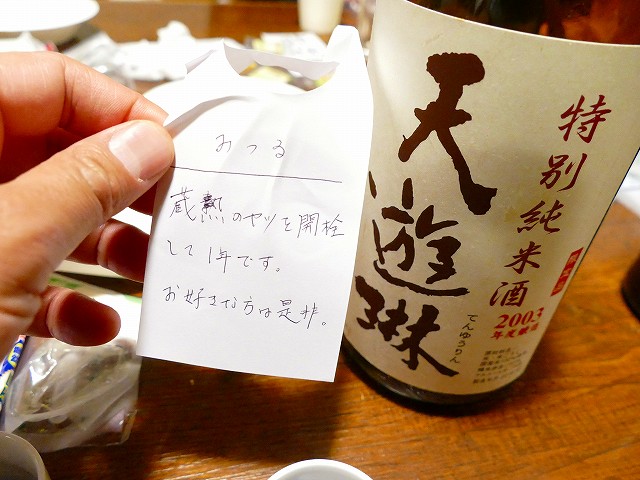 みつる
蔵熟のヤツを開栓
して1年です。
お好きな方は是非。
特別純米酒
2003
年度醸造
天遊琳
てんゆうりん